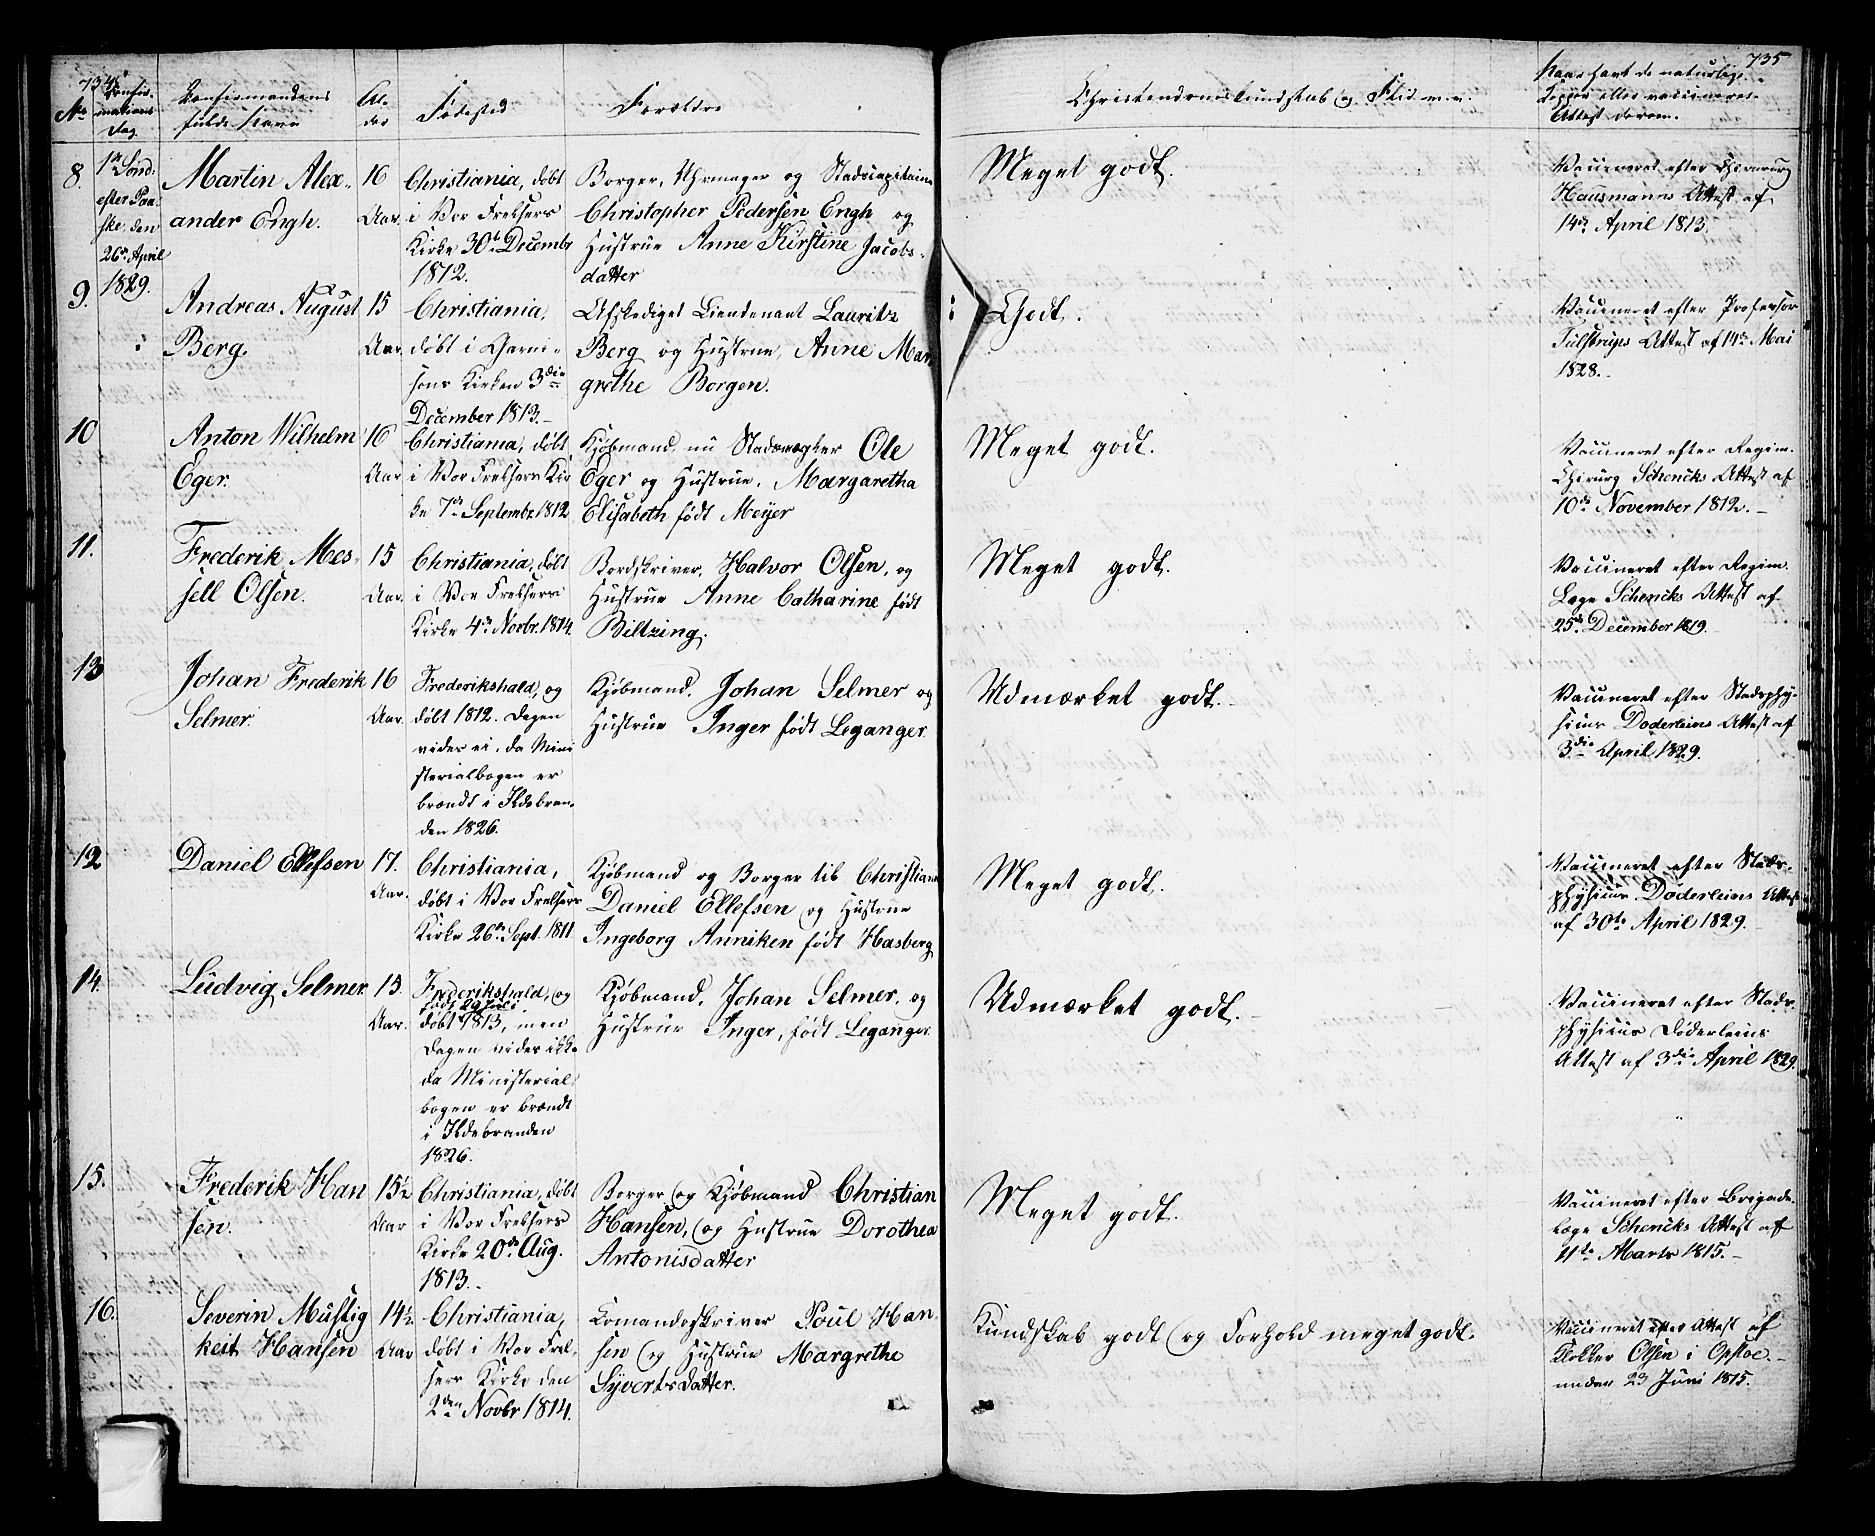 734
No
Confir-
mations
Dag.
Confirmandens
fulde Navn
Al-
der
Fødested
Forældre
8.
1ste Sønd.
efter Paa-
ske, den
26de April
1829.
Martin Alex-
ander Engh.
16
Aar.
Christiania, døbt
i Vor Frelsers
Kirke 30te Decembr
1812.
Borger, Uhrmager og Stadscapitaine
Christopher Pedersen Engh og
Hustrue Anne Kirstine Jacobs-
datter
9.
Andreas August
Berg.
15
Aar.
Christiania,
døbt i Garni-
sons Kirken 3die
December 1813.-
Afskediget Lieutenant Lauritz
Berg og Hustrue, Anne Mar-
grethe Borgen.
10
Anton Wilhelm
Eger.
16
Aar
Christiania, døbt
i Vor Frelsers Kir
ke 7de Septembr 1812
Kjøbmand, nu Stadsmægler Ole
Eger og Hustrue, Margaretha
Elisabeth født Meyer
11.
Frederik Mes-
sell Olsen.
15
Aar.
Christiania, døbt
i Vor Frelsers
Kirke 4de Novbr. 1814.
Bordskriver, Halvor Olsen, og
Hustrue Anne Catharine født
Biltzing.
13
Johan Frederik
Selmer.
16
Aar.
Frederikshald, og
døbt 1812. Dagen
vides ei, da Mini
sterialbogen er
brændt i Ildebran-
den 1826.
Kjøbmand, Johan Selmer og
Hustrue Inger født Leganger
12
Daniel Ellefsen
17.
Aar.
Christiania,
døbt i Vor Frelsers
Kirke 26de Sept. 1811
Kjøbmand og Borger til Christiania
Daniel Ellefsen og Hustrue
Ingeborg Anniken født Hasberg
14.
Ludvig Selmer.
13.
Aar.
Frederikshald, og
døbt 1813, men
Dagen vides ikke
da Ministerial
bogen er brændt
i Ildebranden
1826.
Kjøbmand, Johan Selmer, og
Hustrue Inger, født Leganger.
15.
Frederik Han
sen.
15½
Aar
Christiania, døbt
i Vor Frelsers
Kirke 20de Aug.
1813.-
Borger og Kjøbmand Christian
Hansen, og Hustrue Dorothea
Antonisdatter
16.
Severin Mustig
keit Hansen
14½
Aar
Christiania,
døbt i Vor Frel-
sers Kirke den
2den Novbr 1814.
Comandoskriver Poul Han
sen og Hustrue Margrethe
Syvertsdatter.
735
Christendomskundskab og Flid m.v.
Naar havt de naturlige
Kopper eller vaccineret.
Attest derom.
Meget godt.
Vaccineret efter Chirurg
Hausmanns Attest af
14de April 1813.
Godt.
Vaccineret efter Professor
Tulstrups Attest af 14de Mai
1828.-
Meget godt.
Vaccineret efter Regim.
Chirurg Schencks Attest af
10de November 1812.-
Meget godt.
Vaccineret efter Regim.
Læge Schencks Attest af
25de December 1819.
Udmærket godt.-
Vaccineret efter Stadsphy-
sicus Døderleins Attest af
3die April 1829.
Meget godt.
Vaccineret efter Stads-
physicus Døderleins Attest
af 30te April 1829.
Udmærket godt.-
Vaccineret efter Stads-
physicus Døderleins
Attest af 3die April 1829.
Meget godt.
Vaccineret efter Brigade-
læge Schencks Attest af
11te Marts 1815.-
Kundskab godt og Forhold meget godt.
Vaccineret efter Attest af
Klokker Olsen i Opsloe.-
under 23 Juni 1815.